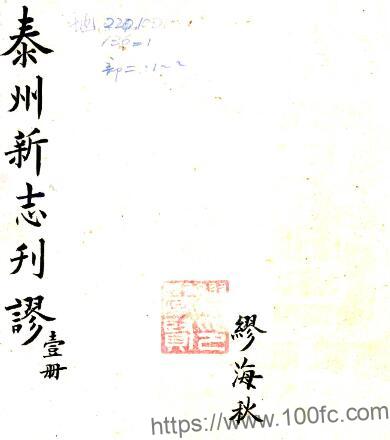 泰州新志刊謬
壹册
地 220.10
130=1
部二·1~2
繆海秋
https://www.100fc.com